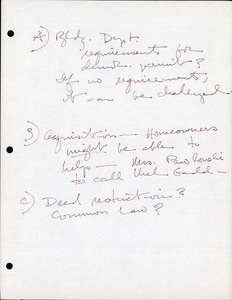 A) Bldg. Dept.
requirements for
demo. permit?
If no requirements,
it can be challenged
B) Acquisition — Homeowners
might be able to
help — Mrs. Pawlowski
to call
C) Deed restriction?
Common Law?